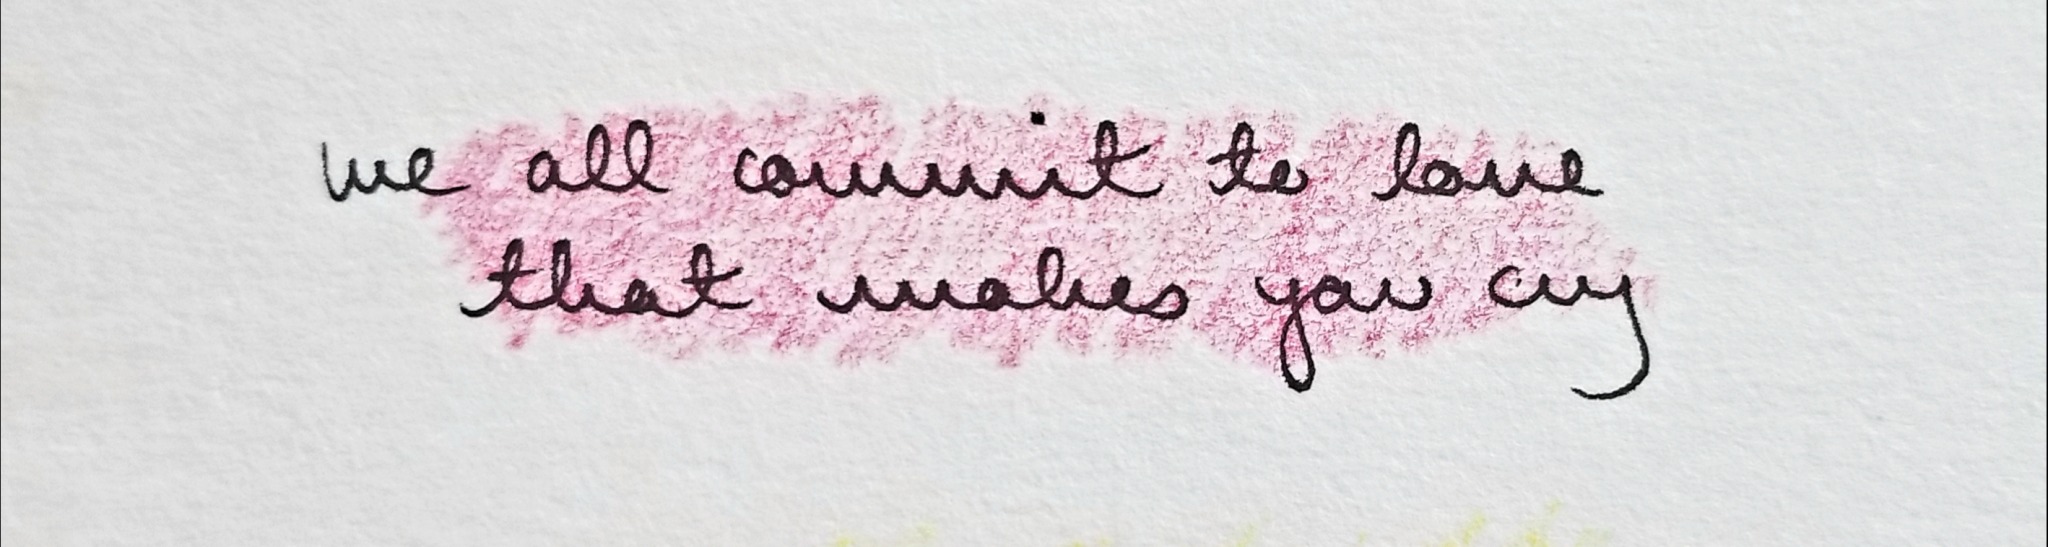 we all commit to love
that makes you cry